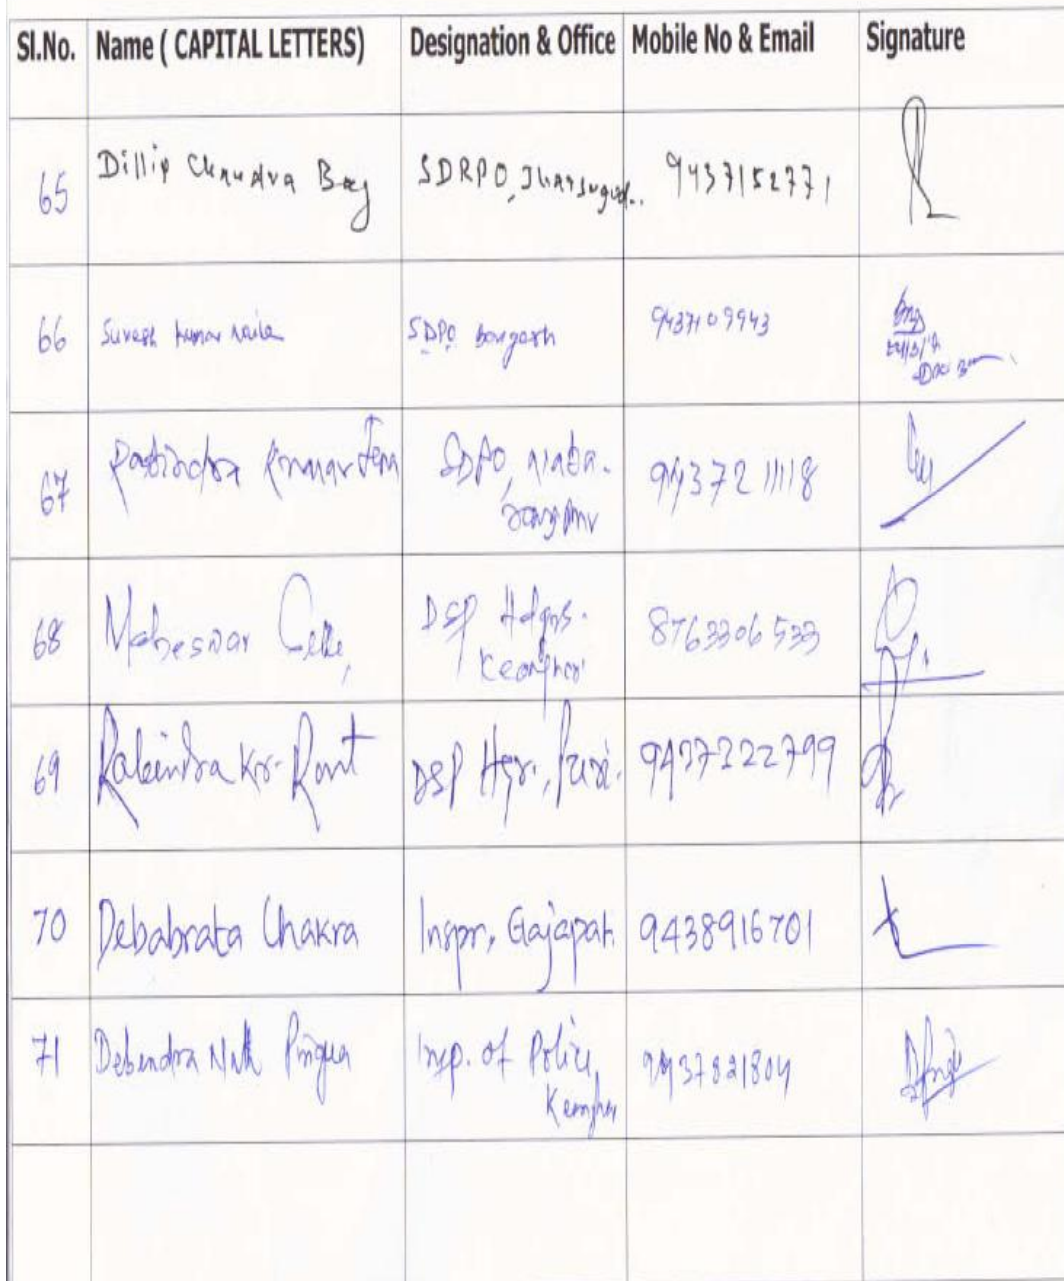 Sl.No. Name ( CAPITAL LETTERS) Designation & Office Mobile No & Email Signature
65 Dillip Chandra Bag SDRPO, Jharsugud.. 9437152771
66 Suresh kumar SDPO 9437109943
67 Kumar Jena SDPO, 9437211118
68 Maheswar DSP Hdqrs. 8763306533
69 Rabindra Kr. Rout DSP Hqr., Puri. 9437322799
70 Debabrata Chakra Inspr, Gajapati 9438916701
71 Debendra Nath Pingua Insp. of Police, 9937821804